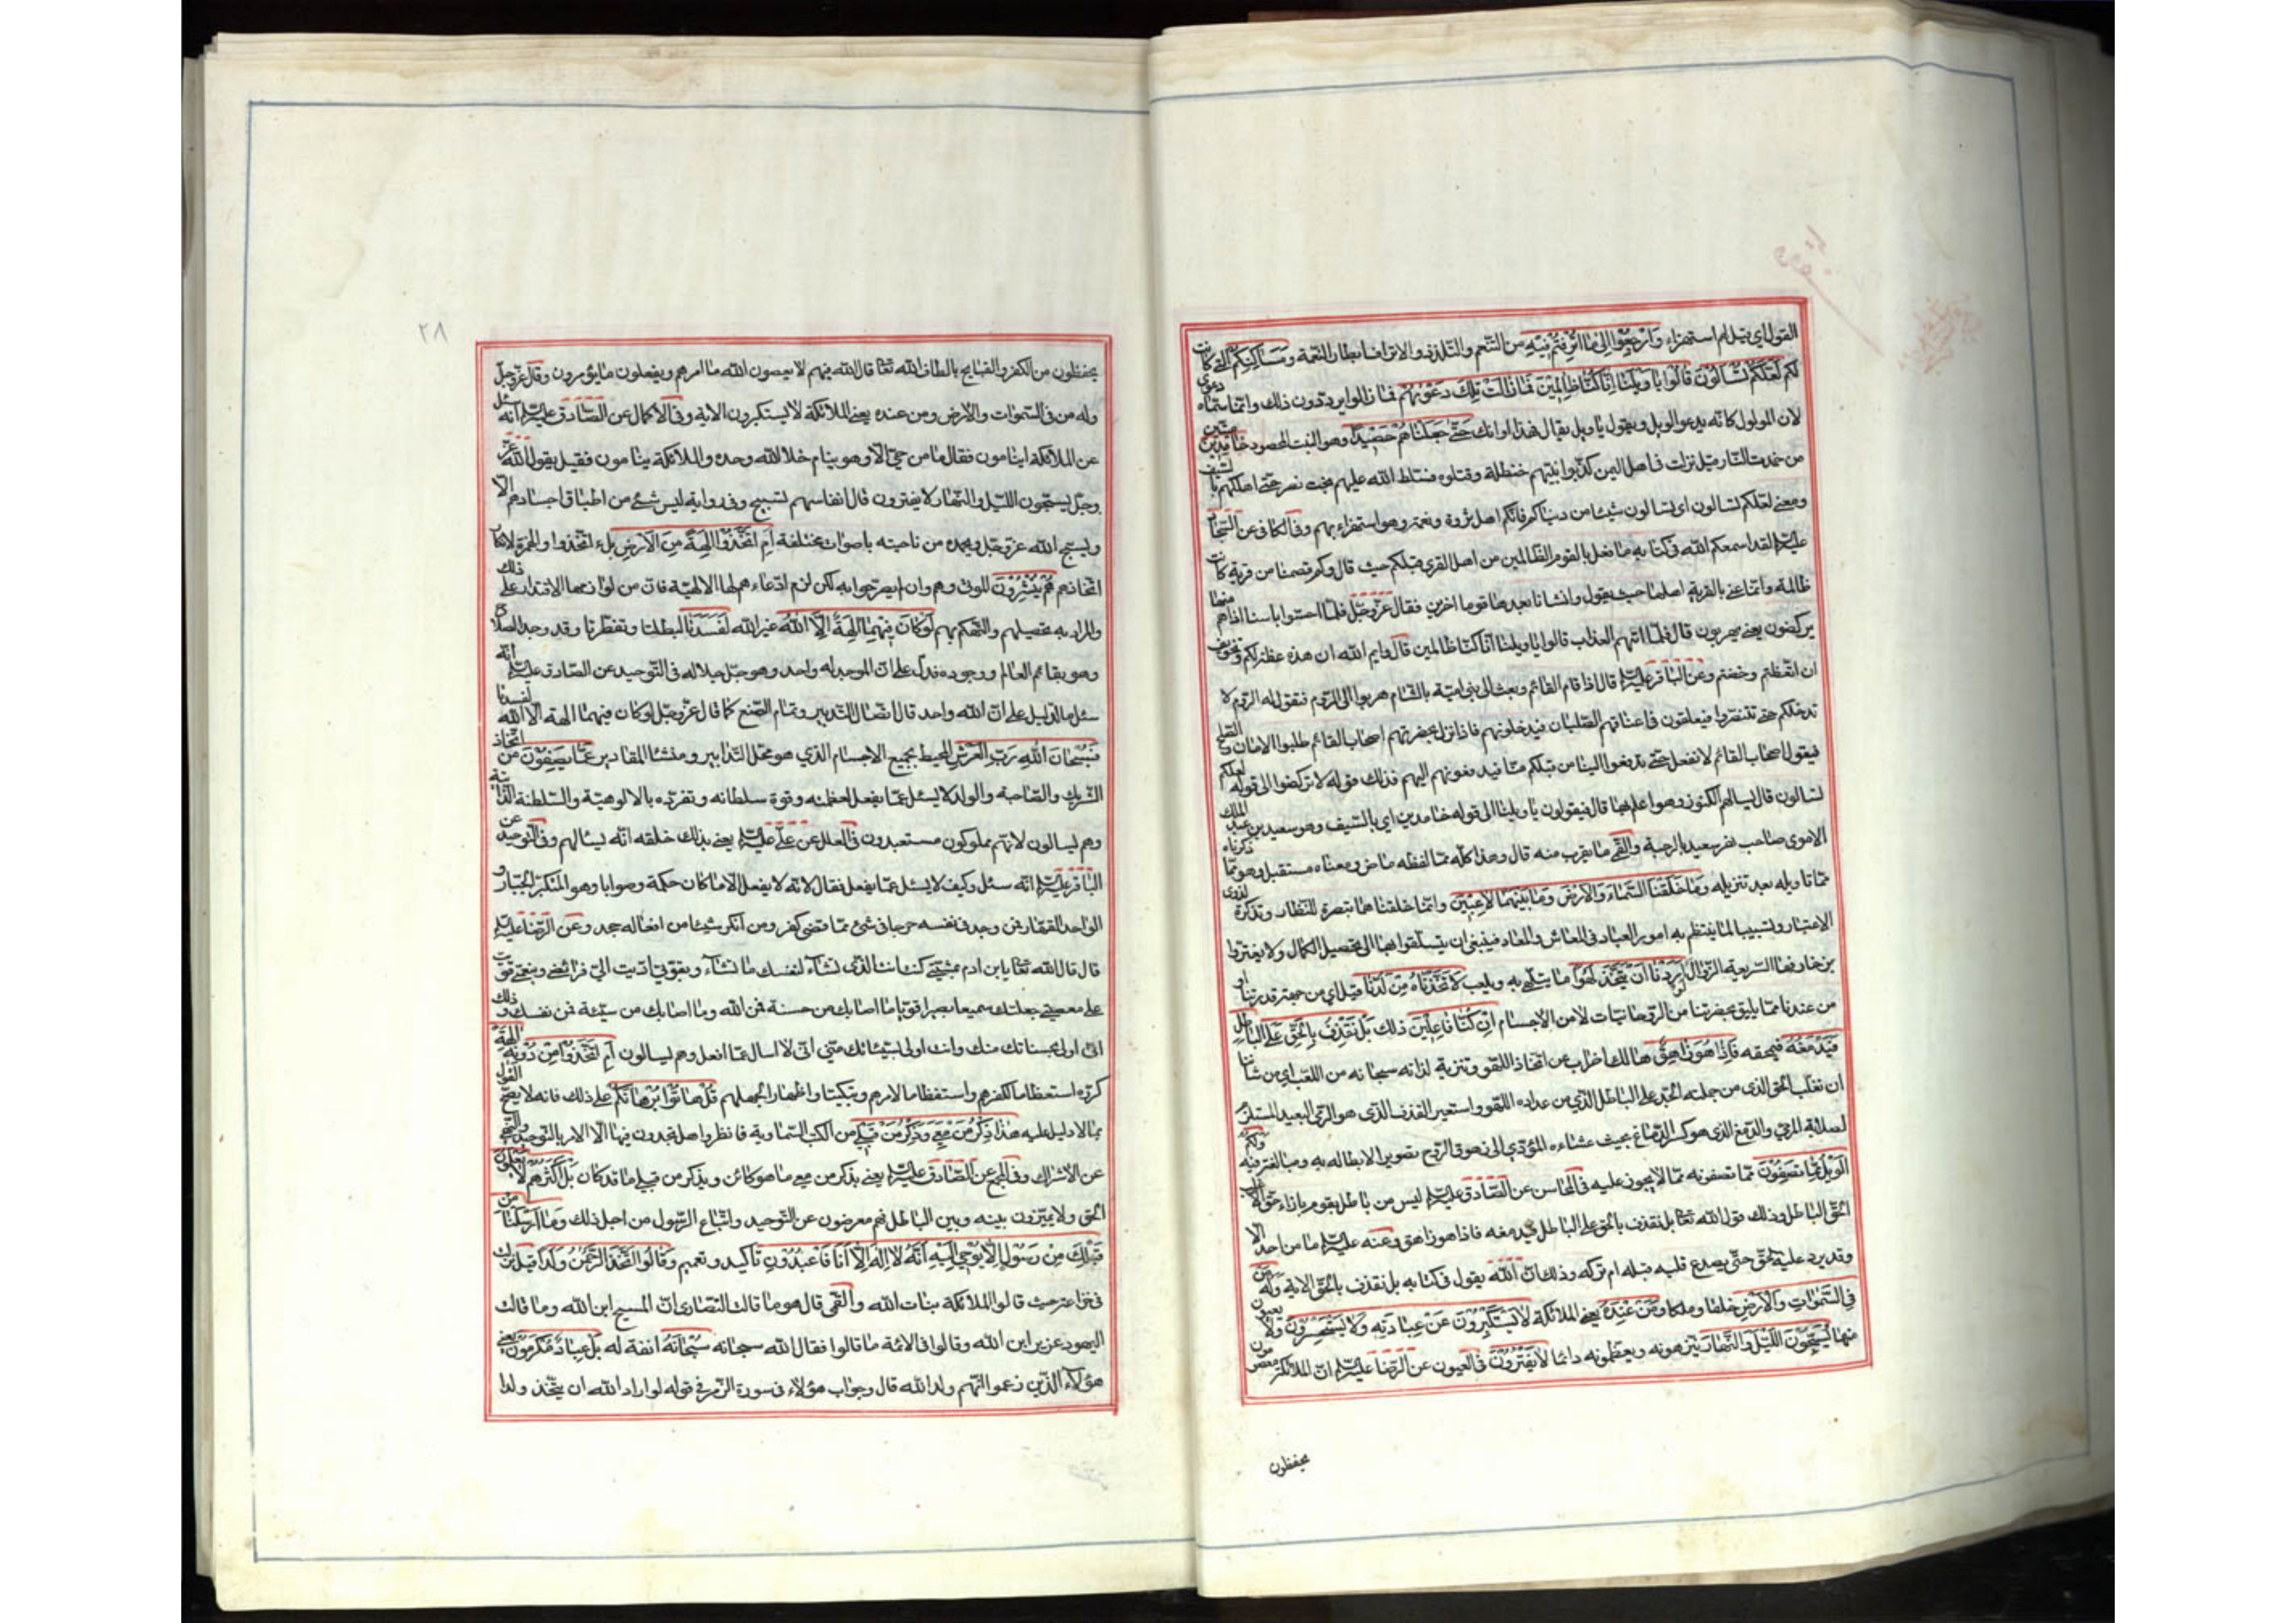 القول اي قيل لهم استهزاء وَارْجِعُوْا اِلىٰ مَا اُتْرِفْتُمْ فِيْهِ من التنعم والتلذذ والاتراف ابطار النعمة وَمَسَاكِنِكُمْ التي كانت
لكم لَعَلَّكُمْ تُسْأَلُوْنَ قَالُوْا يَا وَيْلَنَا اِنَّا كُنَّا ظَالِمِيْنَ فَمَا زَالَتْ تِلْكَ دَعْوٰىهُمْ فما زالوا يرددون ذلك وانما سماه دعوى
لان المولول كانه يدعو الويل ويقول يا ويل تعال فهذا اوانك حَتّىٰ جَعَلْنَاهُمْ حَصِيْدًا وهو النبت المحصود خَامِدِيْنَ ميتين
من خمدت النار قيل نزلت في اهل اليمن كذبوا نبيهم حنظلة وقتلوه فسلط الله عليهم بخت نصر حتى اهلكهم بالسيف
ومعنى لعلكم تسالون اي تسالون شيئا من دنياكم فانكم اهل ثروة ونعمة وهو استهزاء بهم وفي الكافي عن السجاد
عليه السلم لقد اسمعكم الله في كتابه ما فعل بالقوم الظالمين من اهل القرى قبلكم حيث قال وكم قصمنا من قرية كانت
ظالمة وانما عنى بالقرية اهلها حيث يقول وانشانا بعدها قوما اخرين فقال عز وجل فلما احسوا باسنا اذا هم منها
يركضون يعني يهربون قال فلما اتيهم العذاب قالوا يا ويلنا انا كنا ظالمين قال وايم الله ان هذه عظة لكم وتخويف
ان اتعظتم وخفتم وعن الباقر عليه السلم قال اذا قام القائم وبعث الى بني امية بالشام هربوا الى الروم فتقول له الروم لا
ندخلكم حتى تتنصروا فيعلقون في اعناقهم الصلبان فيدخلونهم فاذا نزل بحضرتهم اصحاب القائم طلبوا الامان والصلح
فيقول اصحاب القائم لا نفعل حتى تدفعوا الينا من قبلكم منا فيدفعونهم اليهم فذلك قوله لا تركضوا الى قوله لعلكم
تسالون قال يسالهم الكنوز وهو اعلم بها قال فيقولون يا ويلنا الى قوله خامدين اي بالسيف وهو سعيد بن عبد الملك
الاموي صاحب نهر سعيد بالرحبة والقمي ما يقرب منه قال وهذا كله مما لفظه ماض ومعناه مستقبل وهو مما ذكرناه
مما تاويله بعد تنزيله وَمَا خَلَقْنَا السَّمَاءَ وَالْاَرْضَ وَمَا بَيْنَهُمَا لَاعِبِيْنَ وانما خلقناها تبصرة للنظار وتذكرة لذوي
الاعتبار وتسبيبا لما ينتظم به امور العباد في المعاش والمعاد فينبغي ان يتسلقوا بها الى تحصيل الكمال ولا يغتروا
بزخارفها السريعة الزوال لَوْ اَرَدْنَا اَنْ نَتَّخِذَ لَهْوًا ما يتلهى به ويلعب لَاتَّخَذْنَاهُ مِنْ لَدُنَّا قيل اي من جهة قدرتنا او
من عندنا مما يليق بحضرتنا من الروحانيات لا من الاجسام اِنْ كُنَّا فَاعِلِيْنَ ذلك بَلْ نَقْذِفُ بِالْحَقِّ عَلَى الْبَاطِلِ
فَيَدْمَغُهُ فيمحقه فَاِذَا هُوَ زَاهِقٌ هالك اضراب عن اتخاذ اللهو وتنزيه لذاته سبحانه من اللعب اي من شاننا
ان نغلب الحق الذي من جملته الجد على الباطل الذي من عداده اللهو واستعير القذف الذي هو الرمي البعيد المستلزم
لصلابة المرمي والدمغ الذي هو كسر الدماغ بحيث عشاءه المؤدي الى زهوق الروح تصويرا لابطاله به ومبالغة فيه وَلَكُمُ
الْوَيْلُ مِمَّا تَصِفُوْنَ مما تصفونه مما لا يجوز عليه في المحاسن عن الصادق عليه السلم ليس من باطل يقوم بازاء حق الا غلب
الحق الباطل وذلك قول الله تعا بل نقذف بالحق على الباطل فيدمغه فاذا هو زاهق وعنه عليه السلم ما من احد الا
وقد يرد عليه الحق حتى يصدع قلبه قبله ام تركه وذلك ان الله يقول في كتابه بل نقذف بالحق الاية وَلَهُ مَنْ
فِي السَّمٰوَاتِ وَالْاَرْضِ خلقا وملكا وَمَنْ عِنْدَهُ يعني الملائكة لَا يَسْتَكْبِرُوْنَ عَنْ عِبَادَتِهِ وَلَا يَسْتَحْسِرُوْنَ ولا يعيون
منها يُسَبِّحُوْنَ اللَّيْلَ وَالنَّهَارَ ينزهونه ويعظمونه دائما لَا يَفْتُرُوْنَ في العيون عن الرضا عليه السلم ان الملائكة معصومون
محفظون
٢٨
يحفظون من الكفر والقبايح بالطاف الله تعا قال الله فيهم لا يعصون الله ما امرهم ويفعلون ما يؤمرون وقال عز وجل
وله من في السموات والارض ومن عنده يعني الملائكة لا يستكبرون الاية وفي الاكمال عن الصادق عليه السلم انه سئل
عن الملائكة اينامون فقال ما من حي الا وهو ينام خلا الله وحده والملائكة ينامون فقيل يقول الله عز
وجل يسبحون الليل والنهار لا يفترون قال انفاسهم تسبيح وفي رواية ليس شئ من اطباق اجسادهم الا
ويسبح الله عز وجل ويحمده من ناحيته باصوات مختلفة اَمِ اتَّخَذُوْا اٰلِهَةً مِنَ الْاَرْضِ بل ء اتخذوا والهمزة لانكار
اتخاذهم هُمْ يُنْشِرُوْنَ الموتى وهم وان لم يصرحوا به لكن لزم ادعاءهم لها الالهية فان من لوازمها الاقتدار على ذلك
والمراد به تجهيلهم والتهكم بهم لَوْ كَانَ فِيْهِمَا اٰلِهَةٌ اِلَّا اللهُ غير الله لَفَسَدَتَا لبطلتا وتفطرتا وقد وجد الصلاح
وهو بقاء العالم ووجوده فدل على ان الموجد له واحد وهو جل جلاله في التوحيد عن الصادق عليه السلم انه
سئل ما الدليل على ان الله واحد قال اتصال التدبير وتمام الصنع كما قال عز وجل لو كان فيهما الهة الا الله لفسدتا
فَسُبْحَانَ اللهِ رَبِّ الْعَرْشِ المحيط بجميع الاجسام الذي هو محل التدابير ومنشا المقادير عَمَّا يَصِفُوْنَ من اتخاذ
الشريك والصاحبة والولد لا يسئل عما يفعل لعظمته وقوة سلطانه وتفرده بالالوهية والسلطنة الذاتية
وهم يسالون لانهم مملوكون مستعبدون في العلل عن علي عليه السلم يعني بذلك خلقه انه يسالهم وفي التوحيد عن
الباقر عليه السلم انه سئل وكيف لا يسئل عما يفعل فقال لانه لا يفعل الا ما كان حكمة وصوابا وهو المتكبر الجبار و
الواحد القهار فمن وجد في نفسه حرجا في شئ مما قضى كفر ومن انكر شيئا من افعاله جحد وعن الرضا عليه السلم
قال قال الله تعا يابن ادم بمشيتي كنت انت الذي تشاء لنفسك ما تشاء وبقوتي اديت الي فرائضي وبنعمتي قويت
على معصيتي جعلتك سميعا بصيرا قويا ما اصابك من حسنة فمن الله وما اصابك من سيئة فمن نفسك و ذلك
اني اولى بحسناتك منك وانت اولى بسيئاتك مني اني لا اسال عما افعل وهم يسالون اَمِ اتَّخَذُوْا مِنْ دُوْنِهِ اٰلِهَةً
كرره استعظاما لكفرهم واستفظاعا لامرهم وتبكيتا واظهارا لجهلهم قُلْ هَاتُوْا بُرْهَانَكُمْ على ذلك فانه لا يصح القول
بما لا دليل عليه هٰذَا ذِكْرُ مَنْ مَعِيَ وَذِكْرُ مَنْ قَبْلِيْ من الكتب السماوية فانظروا هل تجدون فيها الا الامر بالتوحيد والنهي
عن الاشراك وفي المجمع عن الصادق عليه السلم يعني بذكر من معي ما هو كائن وبذكر من قبلي ما قد كان بَلْ اَكْثَرُهُمْ لَا يَعْلَمُوْنَ
الحق ولا يميزون بينه وبين الباطل فهم معرضون عن التوحيد واتباع الرسول من اجل ذلك وَمَا اَرْسَلْنَا مِنْ
قَبْلِكَ مِنْ رَسُوْلٍ اِلَّا يُوْحىٰ اِلَيْهِ اَنَّهُ لَا اِلٰهَ اِلَّا اَنَا فَاعْبُدُوْنِ تاكيد وتعميم وَقَالُوْا اتَّخَذَ الرَّحْمٰنُ وَلَدًا قيل نزلت
في خزاعة حيث قالوا الملائكة بنات الله والقمي قال هو ما قالت النصارى ان المسيح ابن الله وما قالت
اليهود عزير ابن الله وقالوا في الائمة ما قالوا فقال الله سبحانه سُبْحَانَهُ انفة له بَلْ عِبَادٌ مُكْرَمُوْنَ يعني
هؤلاء الذين زعموا انهم ولد الله قال وجواب هؤلاء في سورة الزمر في قوله لو اراد الله ان يتخذ ولدا